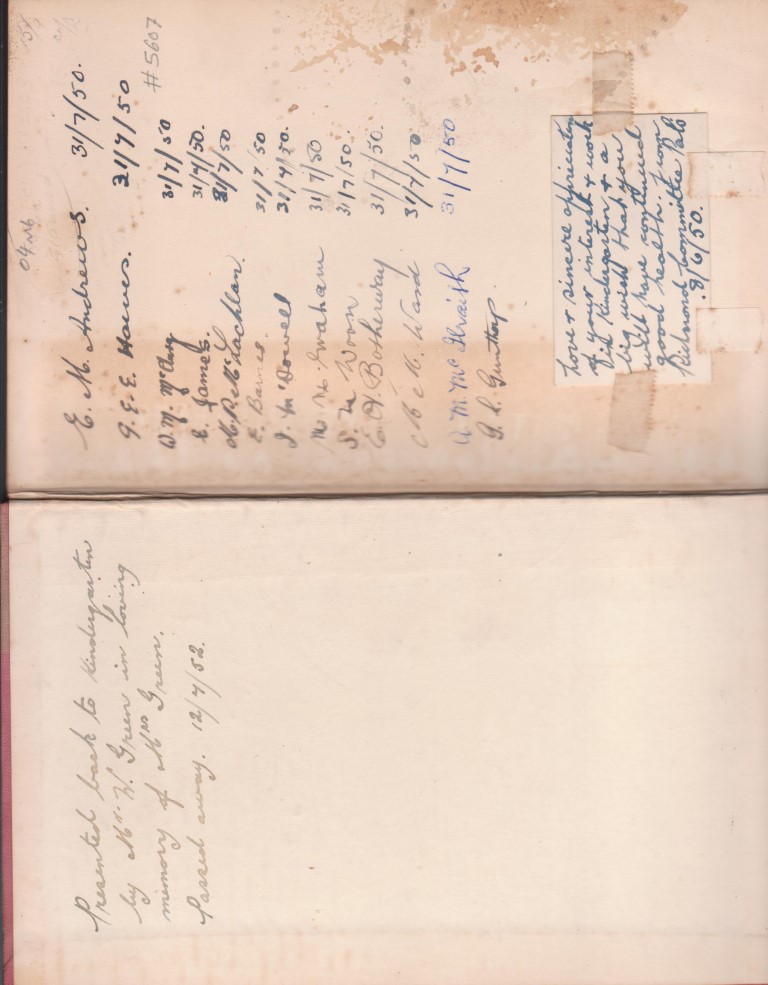 Presented back to Kindergarten
by Mr. W. Green in loving
memory of Mrs Green.
Passed away. 12/7/52.
E. M. Andrews. 31/7/50.
G. E. E. Hawes. 31/7/50
#5607
D. M. McClung 31/7/50
E. James. 31/7/50.
McLachlan. 31/7/50
E. Barnes. 31/7/50
J. McDowell 31/7/50.
Graham 31/7/50
S. Woon 31/7/50.
E. Botherway 31/7/50.
M. Ward 31/7/50
A. M. McIlraith 31/7/50
Love & sincere appreciation
of your interest & work
Kindergarten & a
big wish that you
will have continued
good health. From
Richmond Committee Pals
8/6/50.